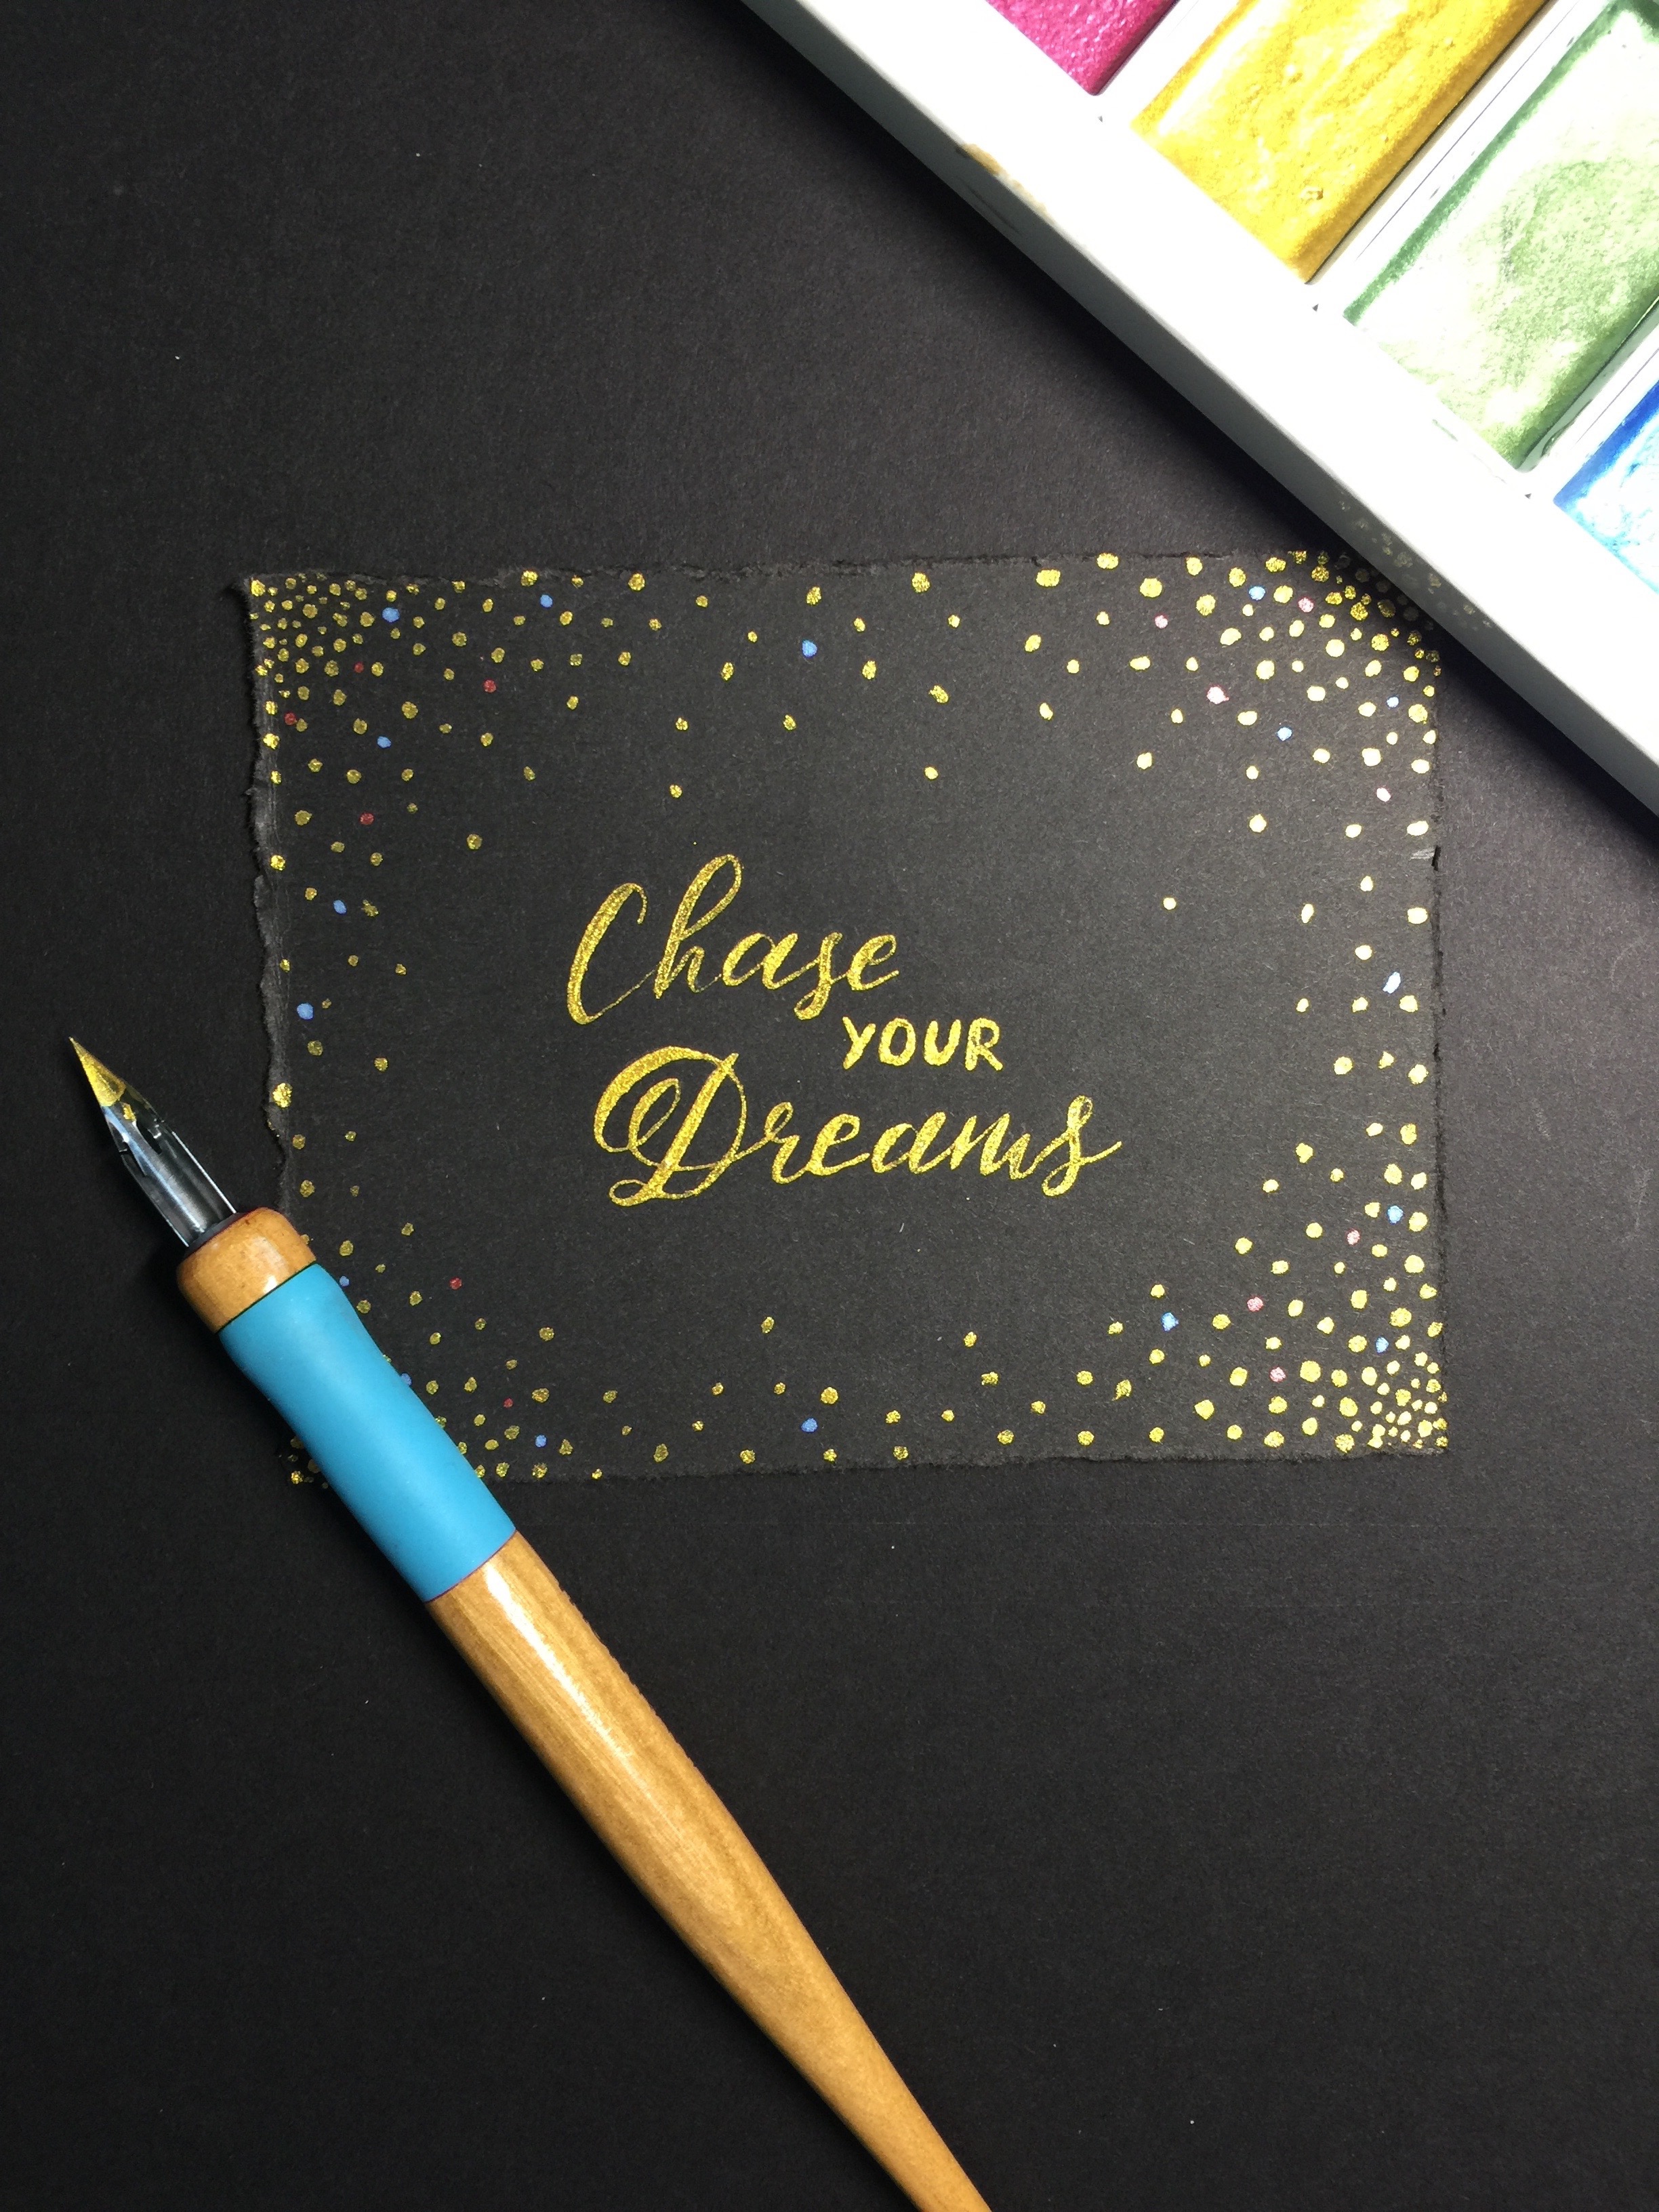 Chase
YOUR
Dreams